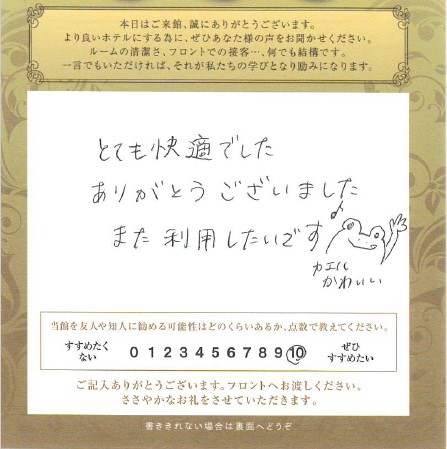 本日はご来館、誠にありがとうございます。
より良いホテルにする為に、ぜひあなた様の声をお聞かせください。
ルームの清潔さ、フロントでの接客…、何でも結構です。
一言でもいただければ、それが私たちの学びとなり励みになります。
とても快適でした
ありがとうございました
また利用したいです♪
カエル
かわいい
当館を友人や知人に勧める可能性はどのくらいあるか、点数で教えてください。
すすめたくない 0 1 2 3 4 5 6 7 8 9 10 ぜひすすめたい
ご記入ありがとうございます。フロントへお渡しください。
ささやかなお礼をさせていただきます。
書ききれない場合は裏面へどうぞ